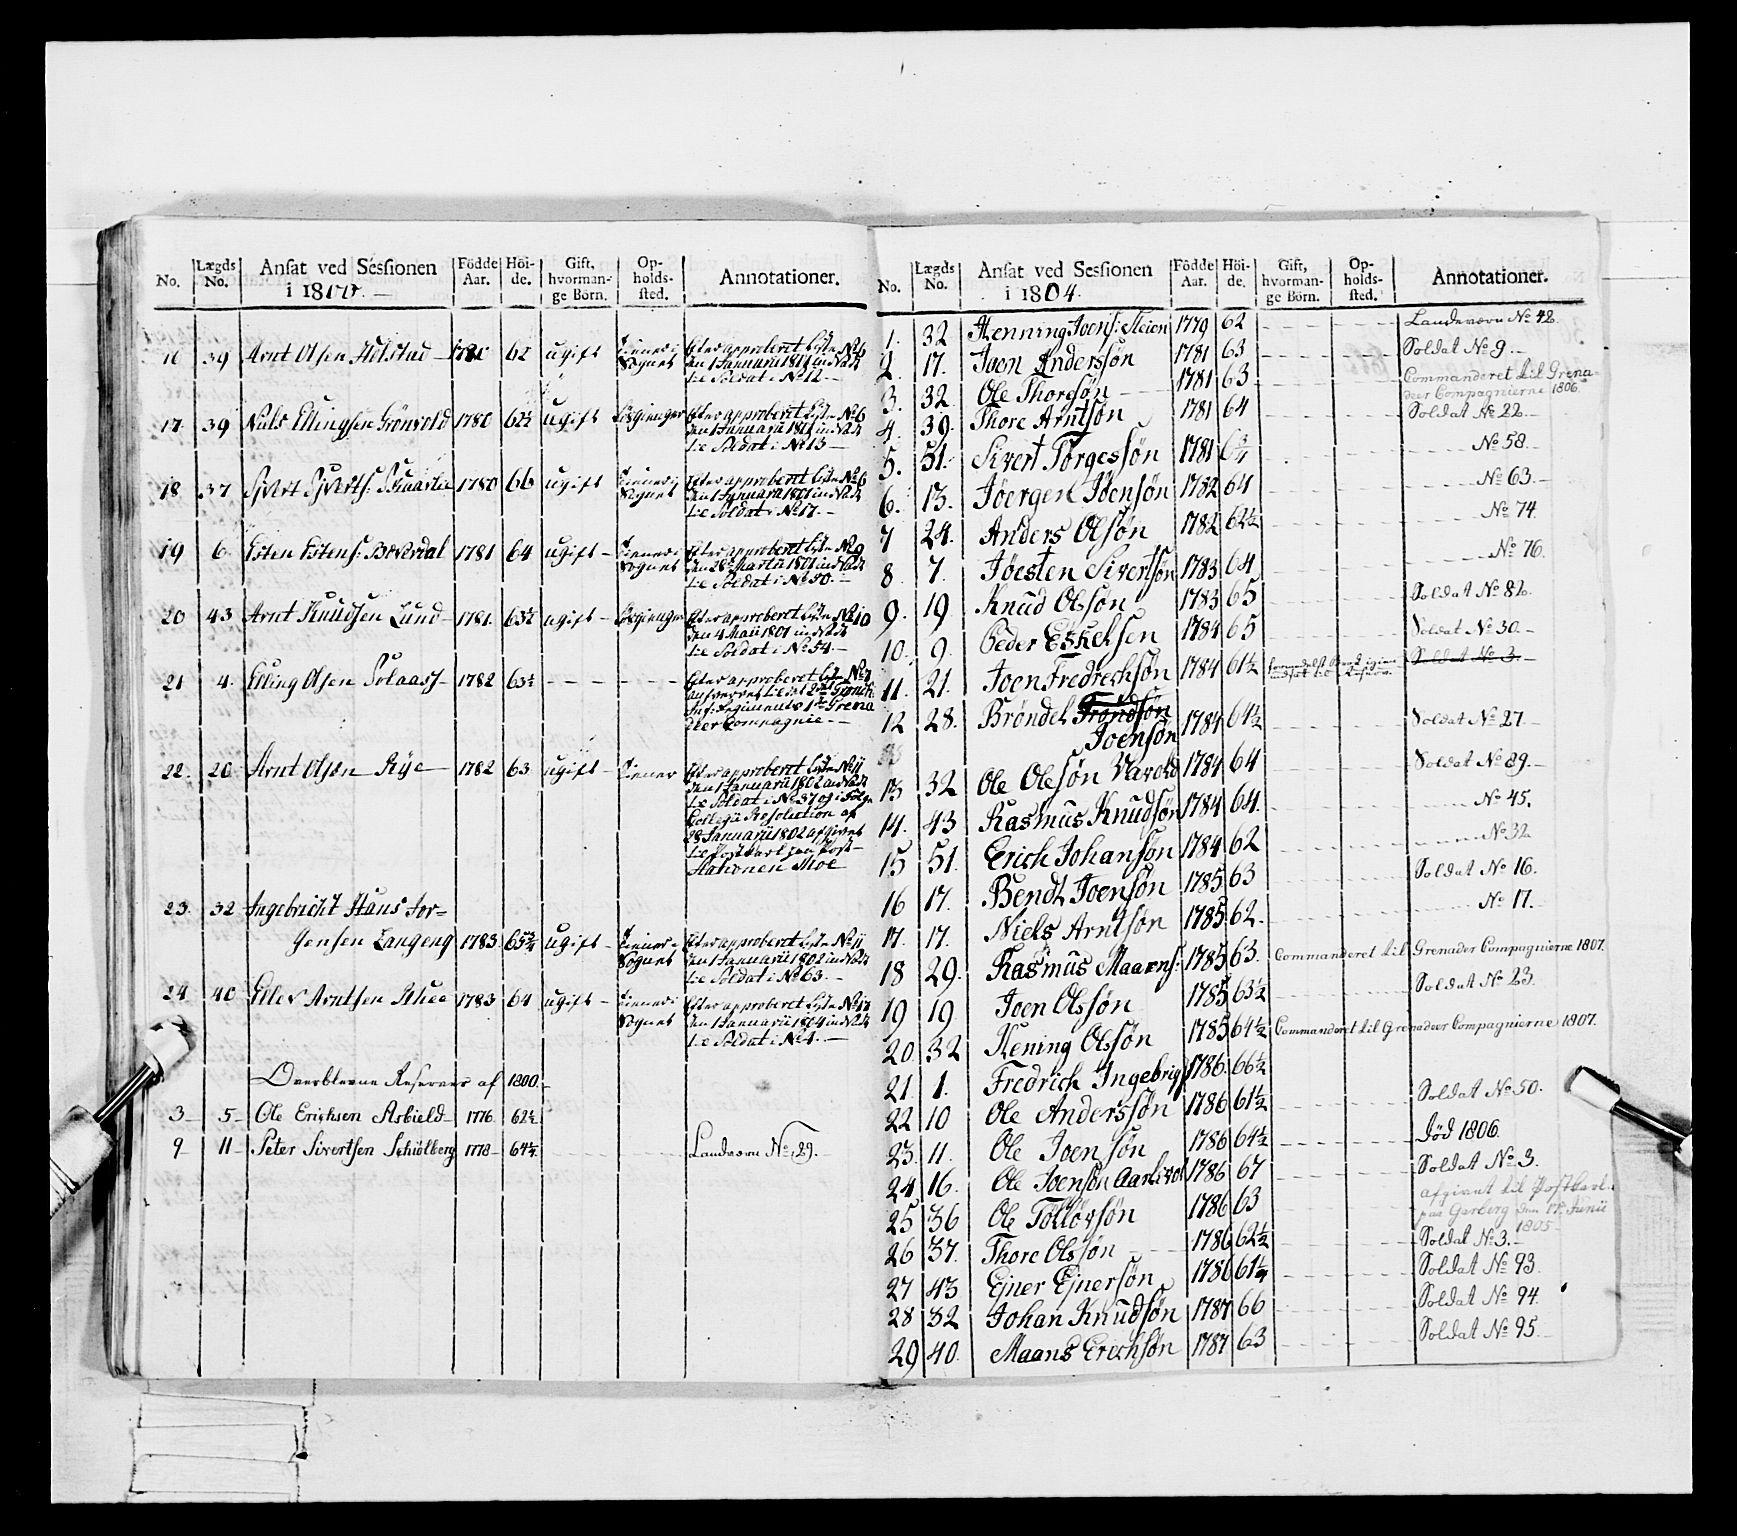 No. Lægds No. Ansat ved Sessionen i 1800. Födde Aar. Höi-de. Gift, hvorman-ge Börn. Op-holds-sted. Annotationer.
16 39 Arnt Olsen Holstad 1780 62 ugift Tiener i Sognet Efter approberet Liste No 6
den 1 Januarii 1801 indsadt
til Soldat i No 12.
17. 39 Niels Ellingsen Grönvold 1780 62½ ugift Efter approberet Liste No 6
den 1 Januarii 1801 indsadt
til Soldat i No 13
18 37 Sivert Siverts: 1780 66 ugift Tiener i Sognet Efter approberet Liste No 6
den 1 Januarii 1801 indsadt
til Soldat i No 17.
19 6 Esten Estens: 1781 64 ugift Tiener i Sognet Efter approberet Liste No 9
den 28de Martii 1801 indsadt
til Soldat i No 50.
20 43 Arnt Knudsen Lund 1781. 63½ ugift Efter approberet Liste No 10
den 4 Maii 1801 indsadt
til Soldat i No 54.
21 4. Elling Olsen Solaas 1782 63½ Efter approberet Liste No 7
afleveret til det 2det Tronh:
Inf: Regiments 1ste Grena
deer Compagnie.
22. 20 Arnt Olsen Rÿe 1782 63 ugift Tiener Efter approberet Liste No 11
den 1 Januarii 1802 indsadt
til Soldat i No 37 og i Følge
Collegii Resolution af
28 Januarii 1802 afgivet
til Postkarl paa Post-
stationen Moe
23. 32 Ingebricht Hans Jor-
gensen Langeng 1783. 65¾ ugift Tiener i Sognet Efter approberet Liste No 11
den 1 Januarii 1802 indsadt
til Soldat i No 63.
24 40 Arntsen Rhee 1783 64 ugift Tiener i Sognet Efter approberet Liste No 17
den 1 Januarii 1804 indsadt
til Soldat i No 4.
Overblevne Reserver af 1800.
3 5 Ole Erichsen Asbield 1776 62½
9 11 Peter Sivertsen Schiölberg 1778 64½ Landværn No 29.
No. Lægds No. Ansat ved Sessionen i 1804. Födde Aar. Höi-de. Gift, hvorman-ge Börn. Op-holds-sted. Annotationer.
1. 32 Henning Joens: Steien 1779 62 Landeværn No 42
2. 17. Joen Anderssøn 1781 63 Soldat No 9.
3. 32 Ole Thorsøn 1781 63 Commanderet til Grena-
deer Compagnierne 1806.
4. 39. Thore Arntsøn 1781 64 Soldat No 22.
5. 51. Sivert Torgessøn 1781 No 58.
6. 13. Jöergen Jöensøn 1782 64 No 63.
7 24. Anders Olsøn 1782 62½ No 74.
8 7. Jöesten Sivertsøn 1783 64 No 76.
9. 19 Knud Olsøn 1783 65 Soldat No 82.
10. 9. Peder Eskelsen 1784 65 Soldat No 30.
11. 21. Joen Fredrichsøn 1784 61½ Soldat No 3.
12 28. Brøndel Trondsøn
Joensøn 1784 64½ Soldat No 27.
13 32 Ole Olesøn Varvold 1784 64 Soldat No 89.
14. 43 Rasmus Knudsøn 1784 64. No 45.
15 51. Erich Johansøn 1784 62 No 32
16 17. Bendt Joensøn 1785 63 Soldat No 16.
17. 17. Niels Arntsøn 1785. 62. No 17.
18 29. Rasmus Maarns: 1785 63. Commanderet til Grenader Compagnierne 1807.
19 19 Joen Olssøn 1785 63½ Soldat No 23.
20 32 Hening Olssøn 1785 64½ Commanderet til Grenadeer Compagnierne 1807.
21 1. Fredrich Ingebrigs 1786. 66½
22 10 Ole Anderssøn 1786 61½ Soldat No 50.
23. 11. Ole Joensøn 1786 64½ Død 1806.
24 16. Ole Joensøn 1786 67 Soldat No 3.
25 36 Ole Tolløvsøn 1786 63 afgivet til Postkarl
paa Garberg den 17. Junii
1805
26 37. Thore Olssøn 1786 62½ Soldat No 3.
27 43 Ejner Ejnersøn 1786 61¼ Soldat No 93.
28 32 Johan Knudsøn 1787 66 Soldat No 94.
29 40. Maans Erichsøn 1787 63 Soldat No 95.